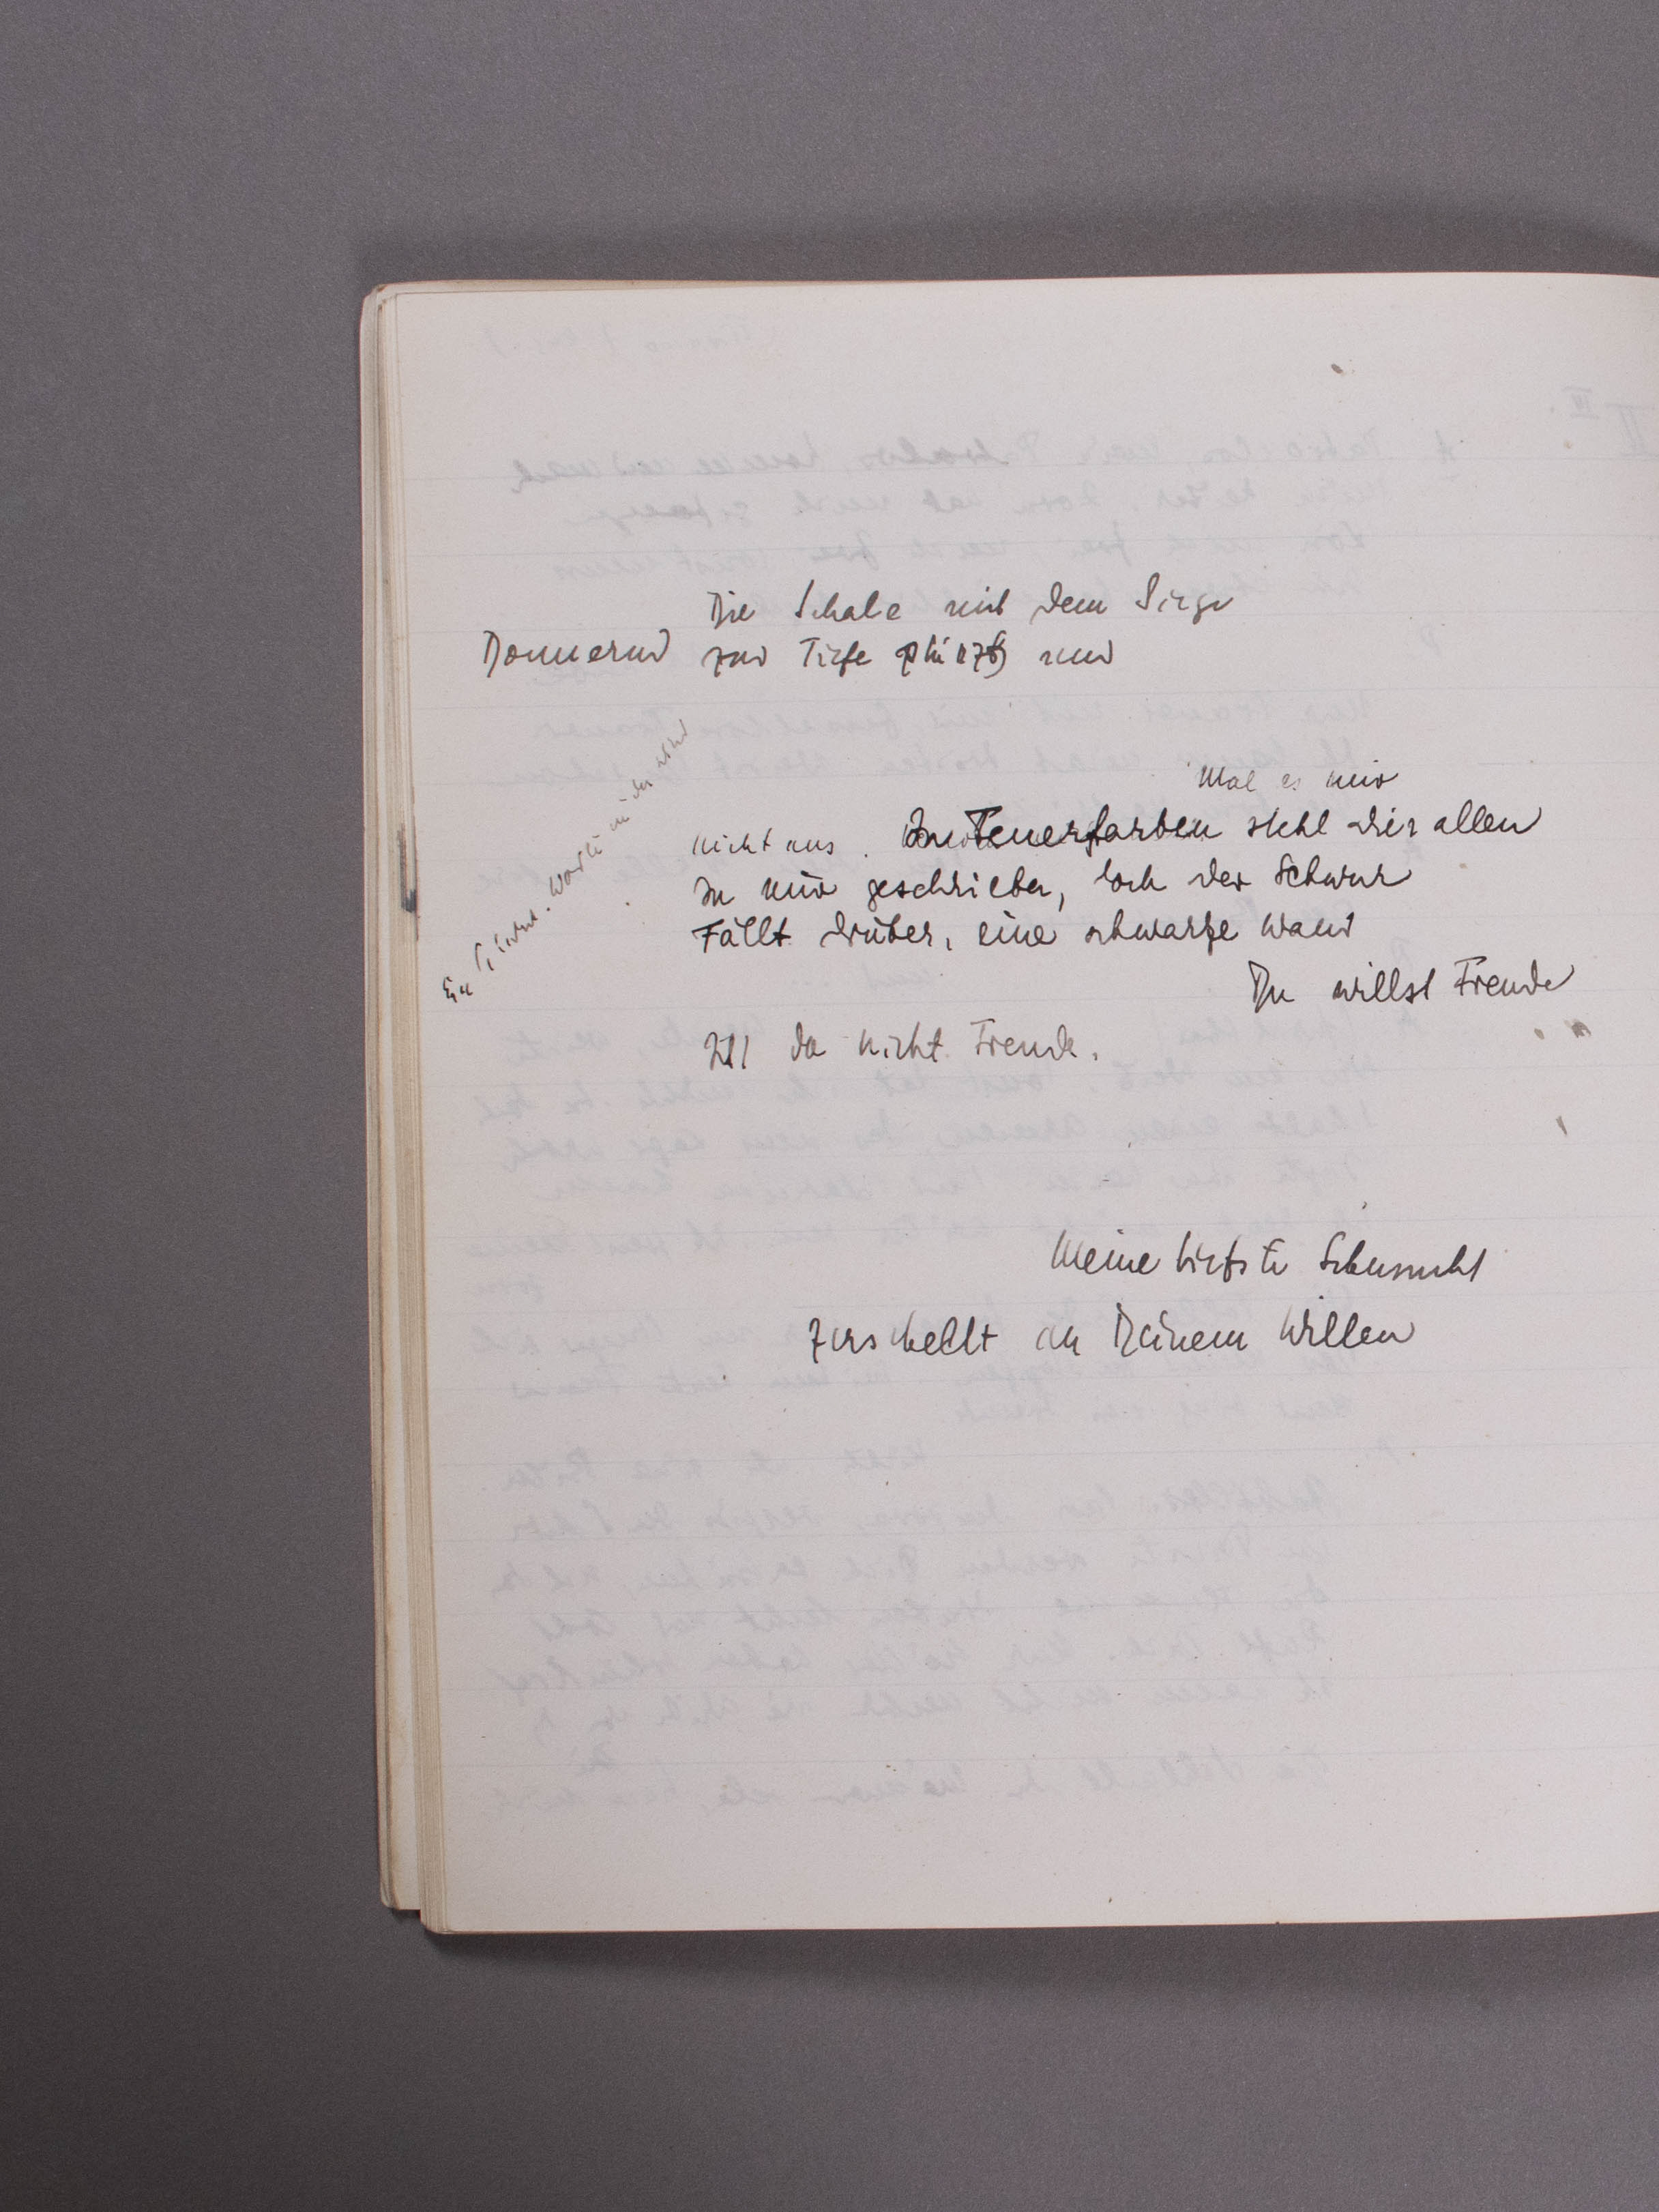 Die Schale mit dem Siege
Donnernd zur Tiefe stürzt nun
Mal es mir
nicht aus. In Feuerfarben steht dies allen
In mir geschrieben, doch der Schwur
Fällt drüber, eine schwarze Wand
Du willst Freude
Ist da nicht Freude.
Meine tiefste Sehnsucht
zerschellt an Deinem Willen